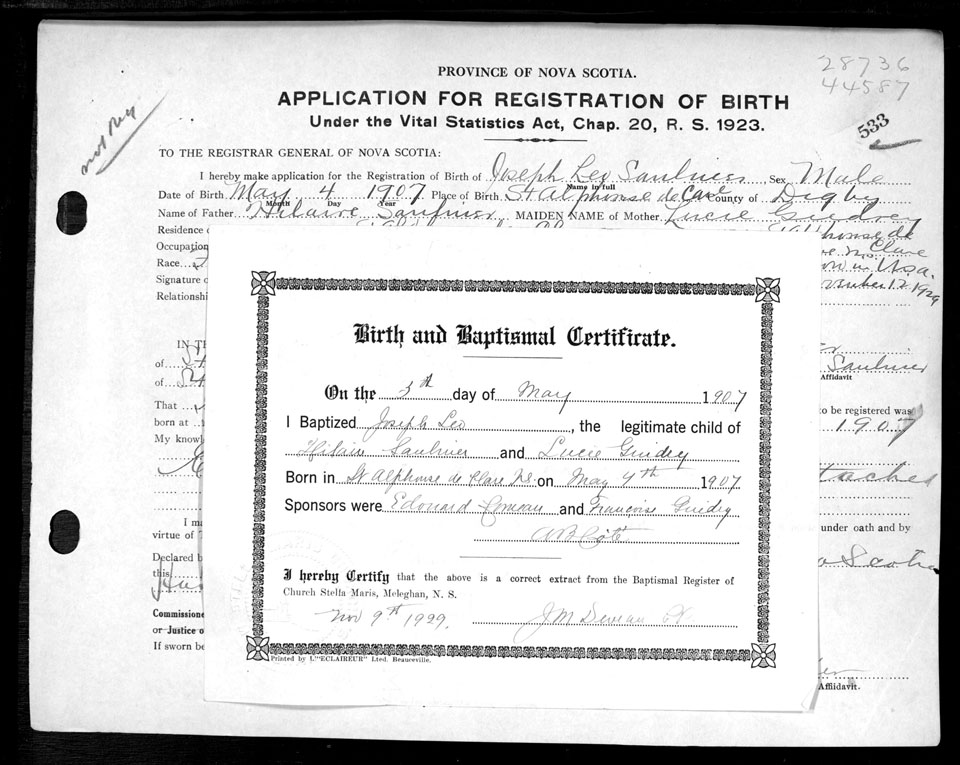 28736
44587
533
not Reg
PROVINCE OF NOVA SCOTIA.
APPLICATION FOR REGISTRATION OF BIRTH
Under the Vital Statistics Act, Chap. 20, R. S. 1923.
TO THE REGISTRAR GENERAL OF NOVA SCOTIA:
I hereby make application for the Registration of Birth of Joseph Leo Saulnier Sex Male
Name in full
Date of Birth May 4 1907 Place of Birth St Alphonse de Clare County of Digby
Month Day Year
Name of Father Hilaire Saulnier MAIDEN NAME of Mother Lucie Guidrey
Residence o
Alphonse de
Occupation
Clare
Race
in Usa.
Signature o
vember 12 1929
Relationshi
IN TH
of St Saulnier
Affidavit
of
That to be registered was
born at 1907
My knowl
attached
I ma under oath and by
virtue of
Declared b a Scotia
this
Commissione
or Justice o
If sworn be
Affiidavit.
Birth and Baptismal Certificate.
On the 5th day of May 1907
I Baptized Joseph Leo, the legitimate child of
Hilaire Saulnier and Lucie Guidry
Born in St Alphonse de Clare NS on May 4th 1907
Sponsors were Edouard Comeau and Françoise Guidry
Coté
I hereby Certify that the above is a correct extract from the Baptismal Register of
Church Stella Maris, Meleghan, N. S.
Nov 9th 1929. J M Deveau
Printed by L'"ECLAIREUR" Lted. Beauceville.